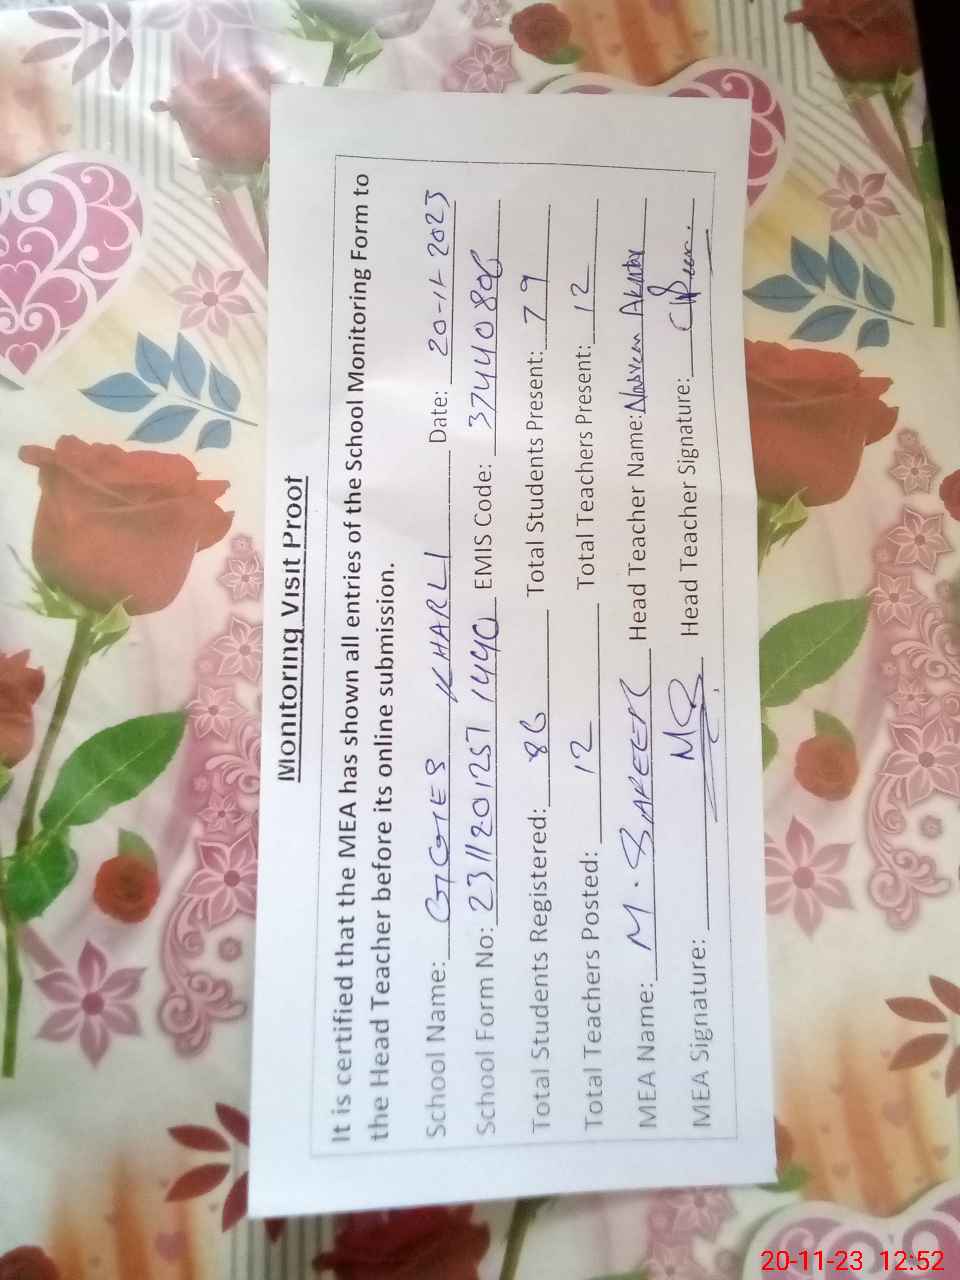 Monitoring Visit Proof
It is certified that the MEA has shown all entries of the School Monitoring Form to
the Head Teacher before its online submission.
School Name: GGES KHARLI Date: 20-11-2023
School Form No: 23112012571440 EMIS Code: 37440806
Total Students Registered: 86 Total Students Present: 79
Total Teachers Posted: 12 Total Teachers Present: 12
MEA Name: M. SAFEER Head Teacher Name: Nasreen Akhtar
MEA Signature: Head Teacher Signature:
20-11-23 12:52